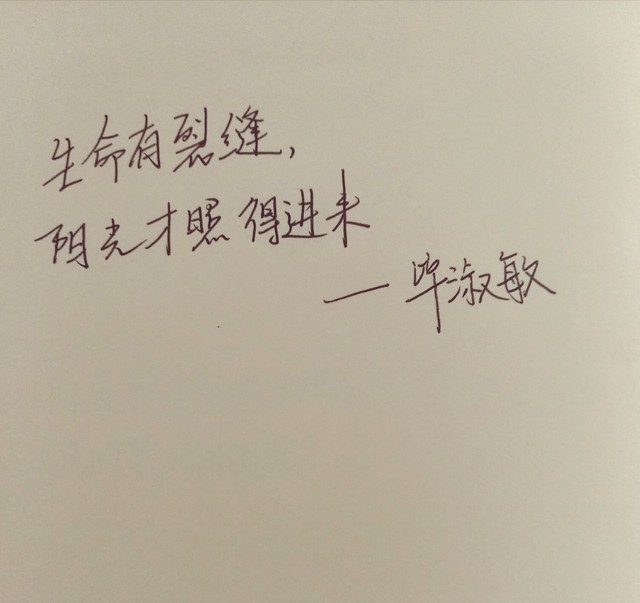 生命有裂缝，
阳光才照得进来
—毕淑敏